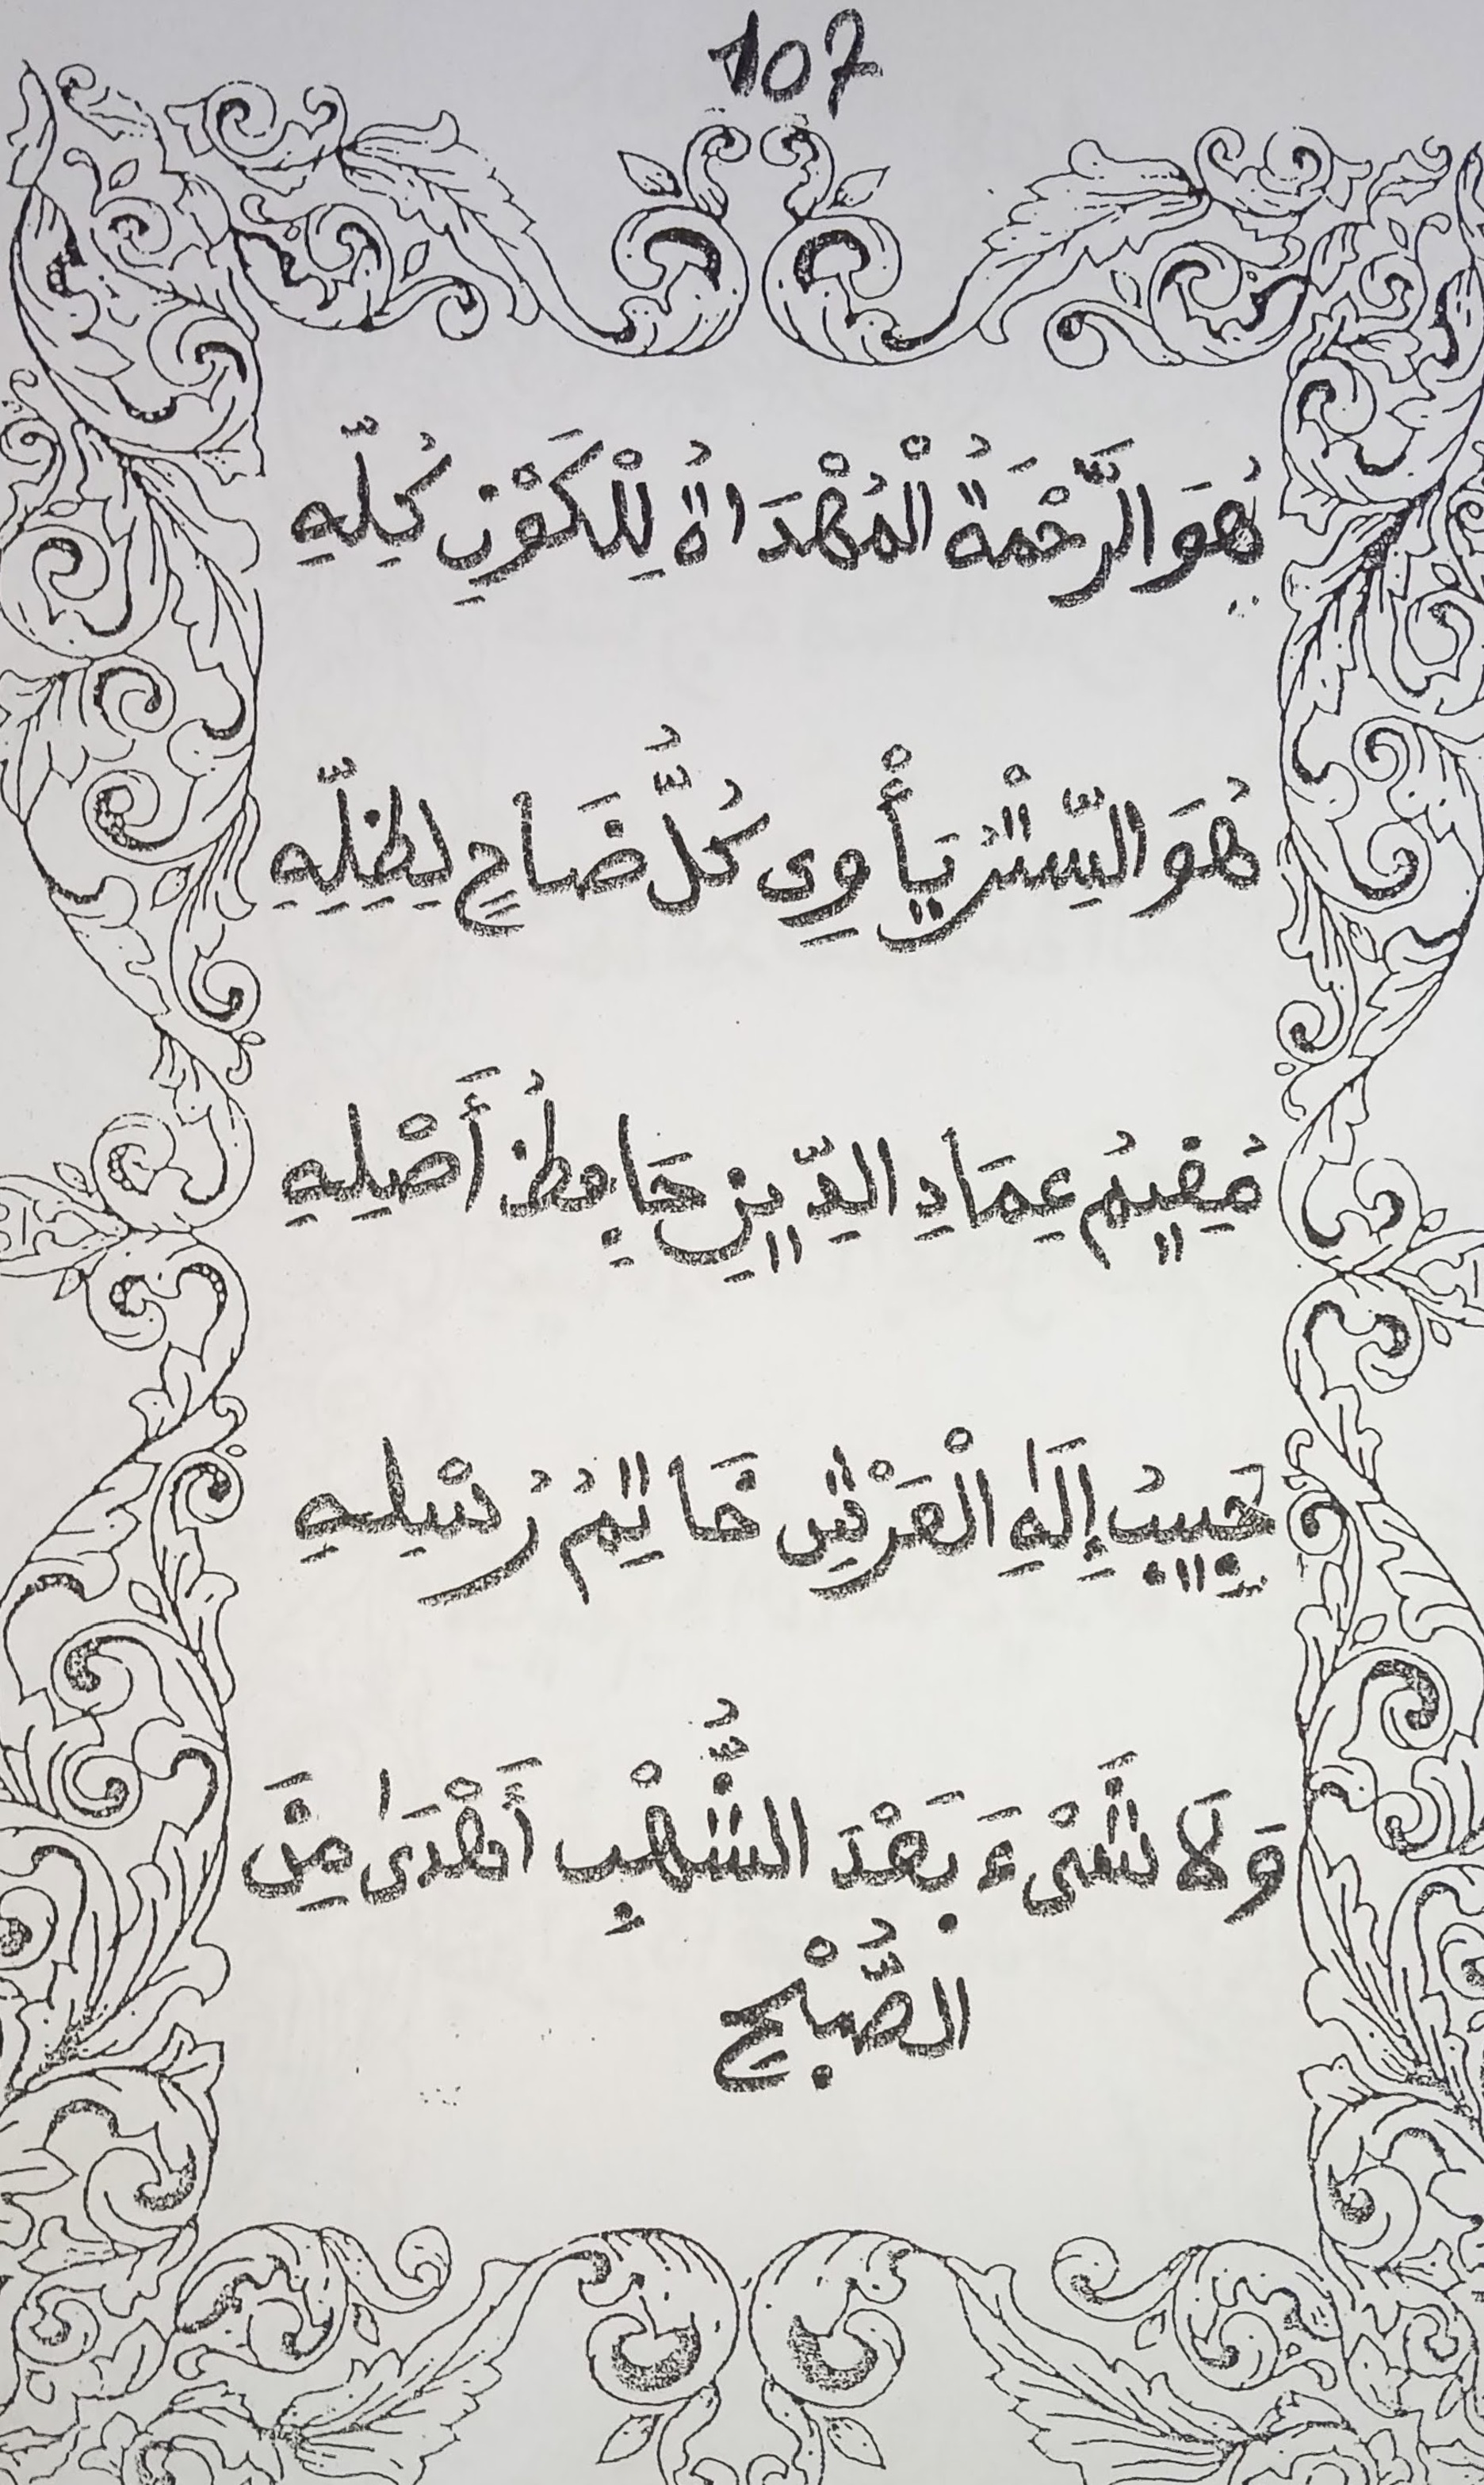 107
هُوَ الرَّحْمَةُ الْمُهْدَاةُ لِلْكَوْنِ كُلِّهِ
هُوَ السِّتْرُ يَأْوِي كُلُّ ضَاحٍ لِظِلِّهِ
مُقِيمُ عِمَادِ الدِّينِ حَافِظُ أَصْلِهِ
حَبِيبُ إِلَٰهِ الْعَرْشِ خَاتِمُ رُسْلِهِ
وَلَا شَيْءَ بَعْدَ الشُّهْبِ أَهْدَىٰ مِنَ
الصُّبْحِ